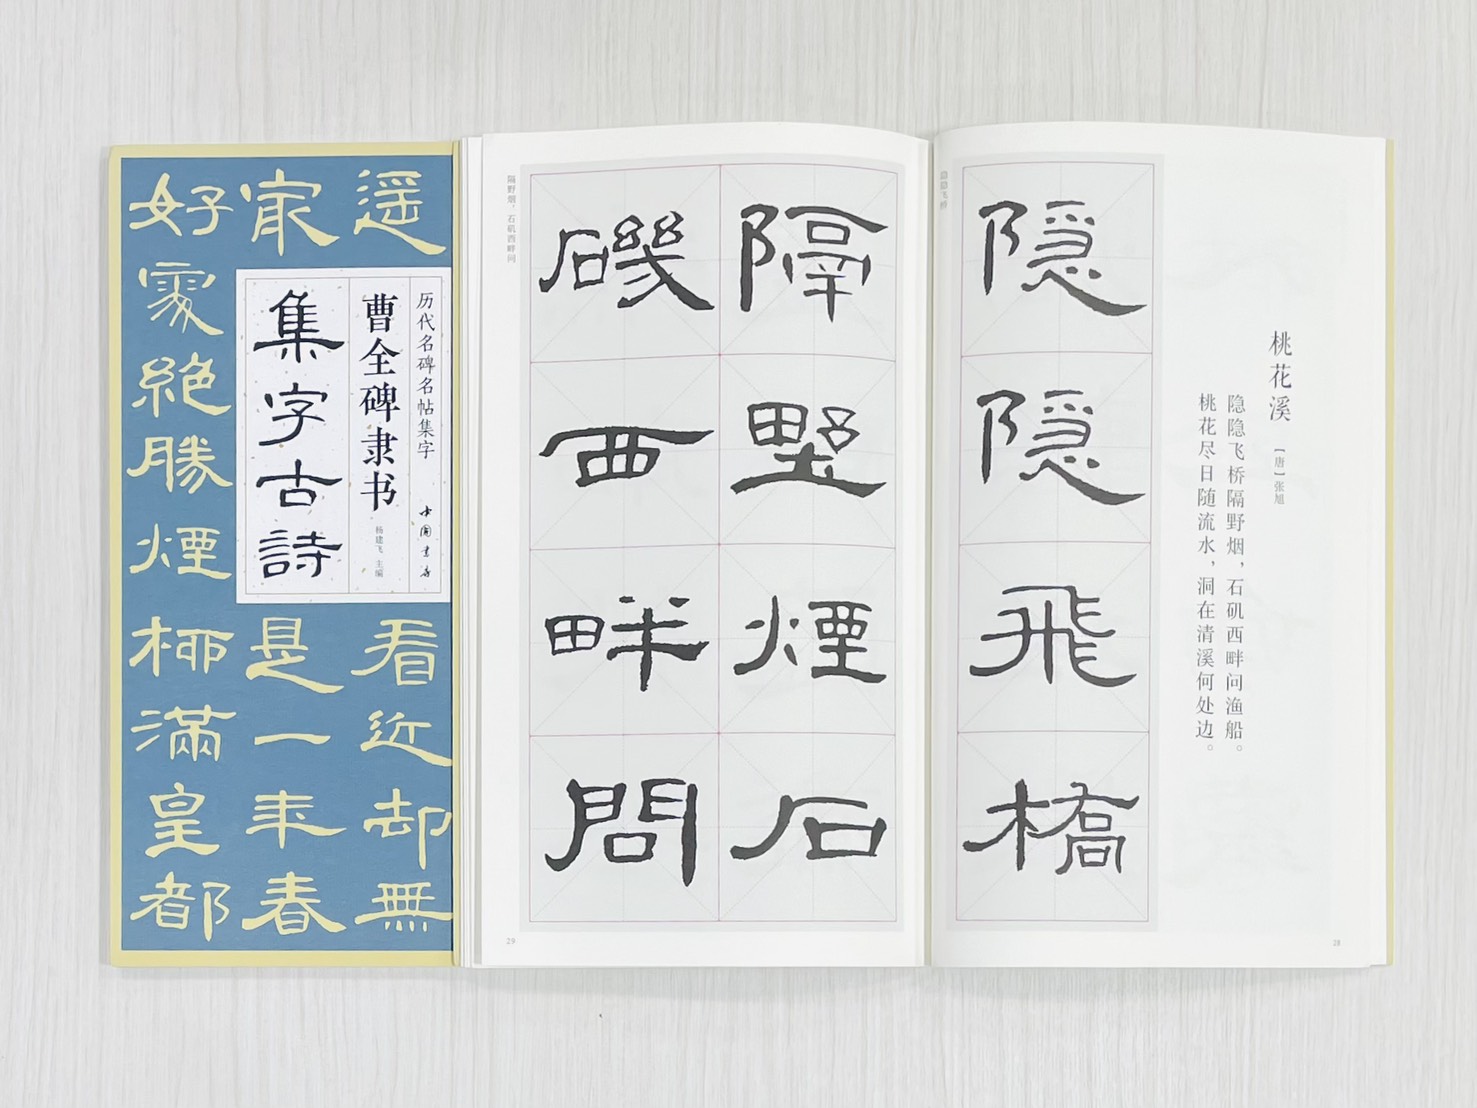 遥
看近却無
冣
是一年春
好處絶勝煙柳滿皇都
历代名碑名帖集字
中國書店
曹全碑隶书
杨建飞 主编
集字古詩
桃花溪 【唐】张旭
隐隐飞桥隔野烟，石矶西畔问渔船。
桃花尽日随流水，洞在清溪何处边。
28
隐隐飞桥
隐隐飛橋
隔墅煙石
磯西畔問
隔野烟，石矶西畔问
29